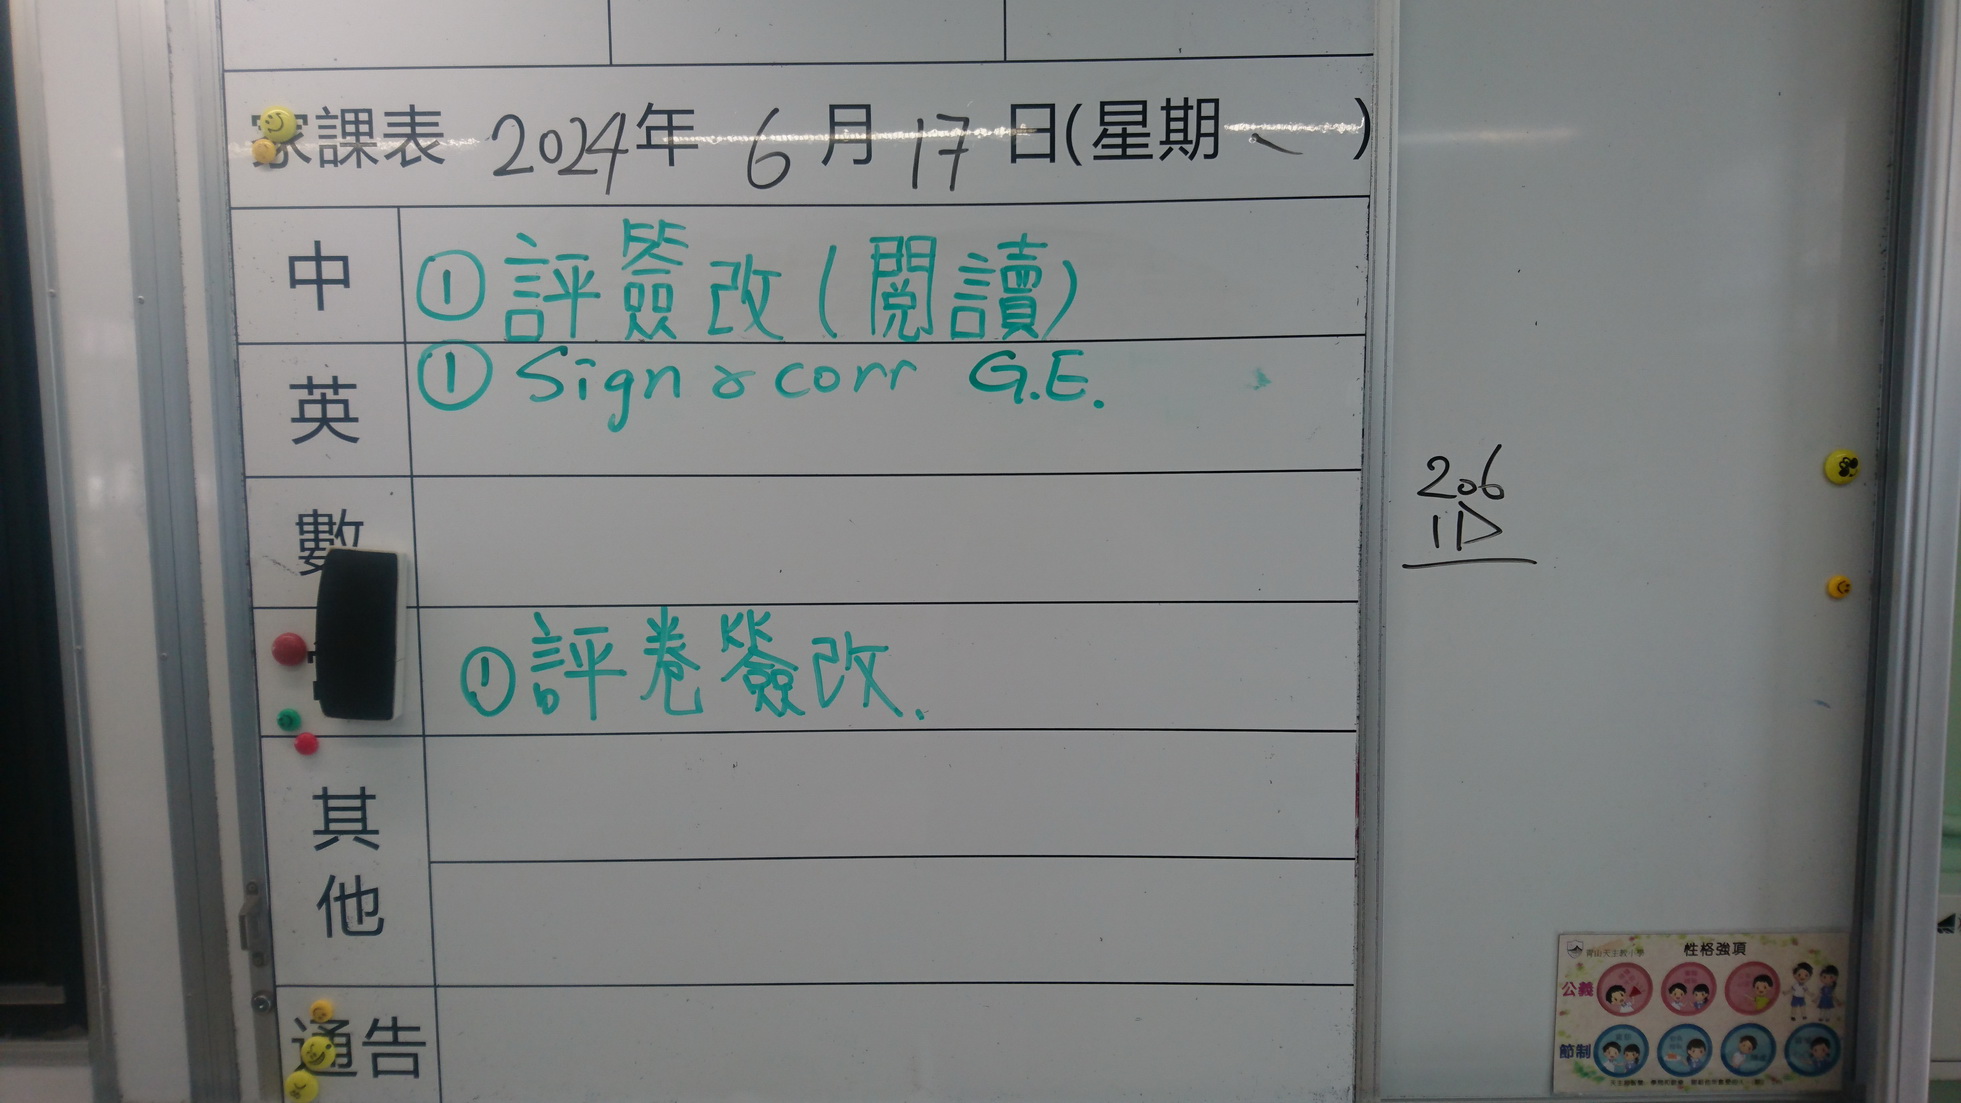 家課表 2024年 6月 17日(星期一)
中 ①評簽改(閱讀)
英 ①Sign & corr G.E.
數
①評卷簽改.
其他
通告
206
11D
青山天主教小學
性格強項
公義
節制